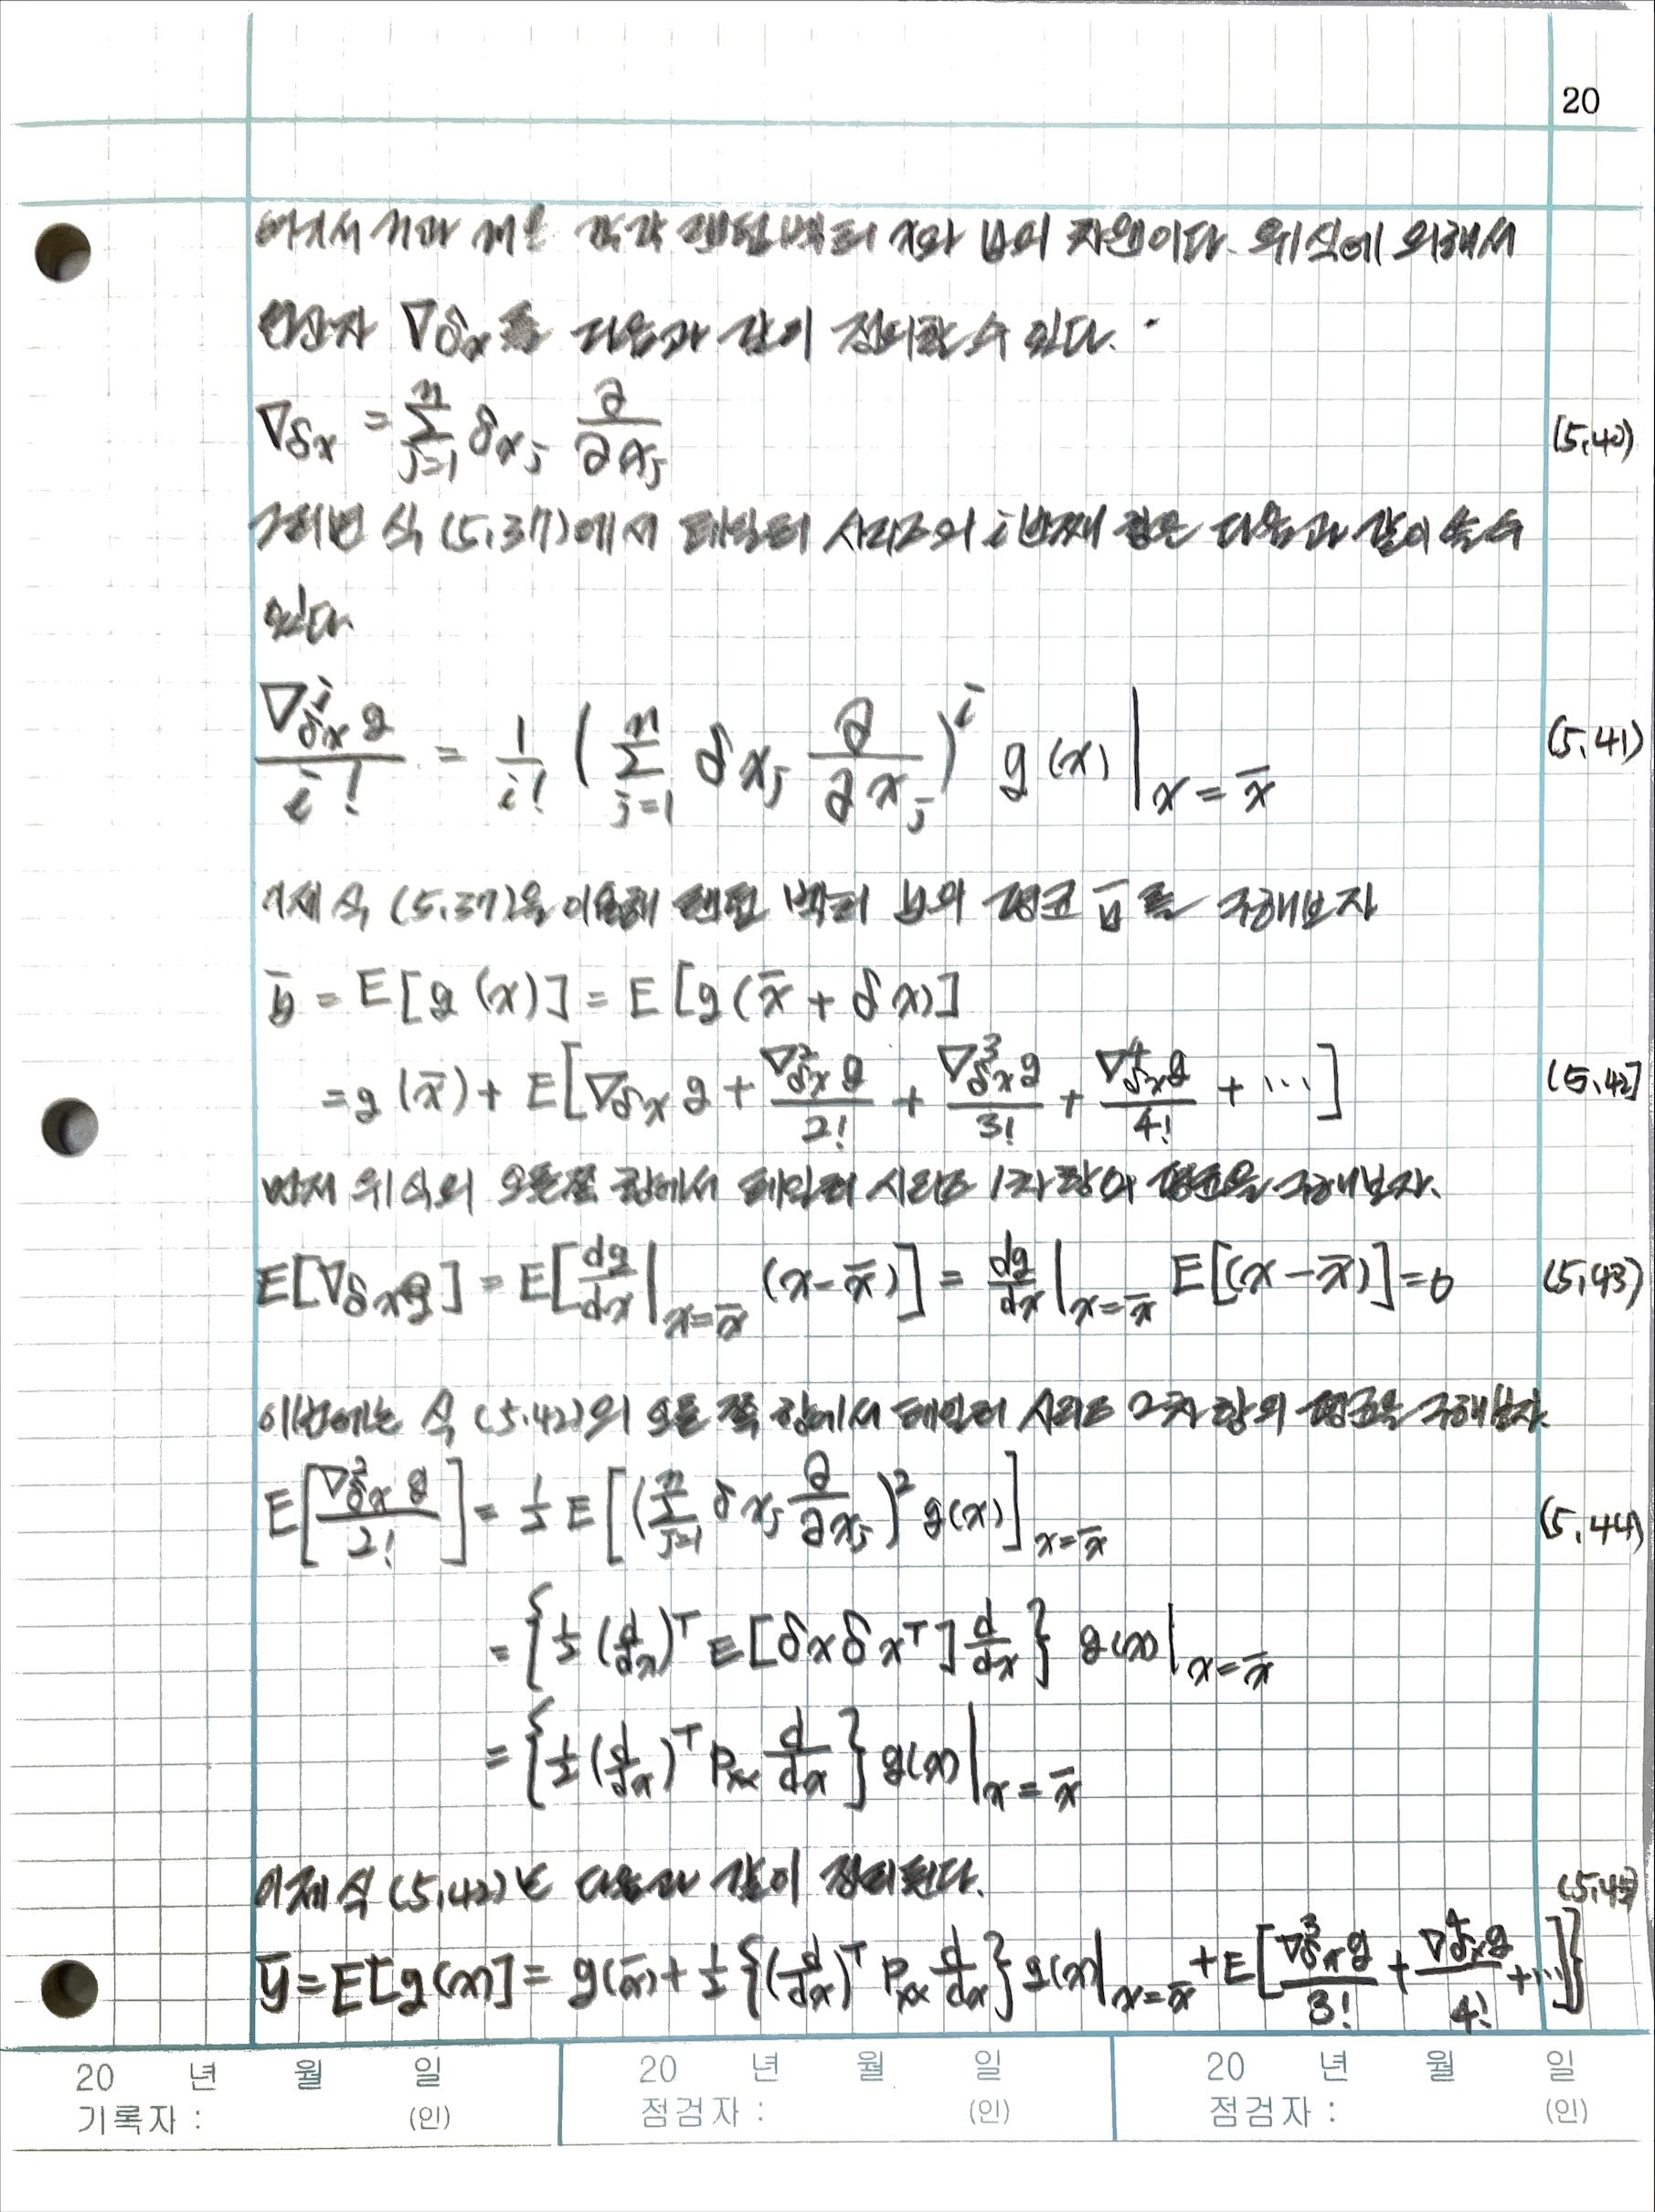 20
여기서 n과 m은 각각 랜덤벡터 x와 y의 차원이다. 위 식에 의해서
연산자 ∇δx를 다음과 같이 정의할 수 있다.
∇δx = Σ_{j=1}^{n} δx_j ∂/∂x_j (5.40)
그러면 식 (5.37)에서 테일러 시리즈의 i번째 항은 다음과 같이 쓸 수
있다.
∇^i_{δx} g / i! = 1/i! ( Σ_{j=1}^{n} δx_j ∂/∂x_j )^i g(x) |_{x=x̄} (5.41)
이제 식 (5.37)을 이용해 랜덤 벡터 y의 평균 ȳ를 구해보자
ȳ = E[g(x)] = E[g(x̄ + δx)]
= g(x̄) + E[∇δx g + ∇²δx g / 2! + ∇³δx g / 3! + ∇⁴δx g / 4! + ⋯] (5.42)
먼저 위 식의 오른쪽 항에서 테일러 시리즈 1차항의 평균을 구해보자.
E[∇δx g] = E[dg/dx |_{x=x̄} (x-x̄)] = dg/dx |_{x=x̄} E[(x-x̄)] = 0 (5.43)
이번에는 식 (5.42)의 오른 쪽 항에서 테일러 시리즈 2차 항의 평균을 구해보자.
E[∇²δx g / 2!] = 1/2 E[(Σ_{j=1}^{n} δx_j ∂/∂x_j)² g(x)]_{x=x̄} (5.44)
= {1/2 (d/dx)^T E[δx δx^T] d/dx} g(x) |_{x=x̄}
= {1/2 (d/dx)^T P_xx d/dx} g(x) |_{x=x̄}
이제 식 (5.42)는 다음과 같이 정리된다. (5.45)
ȳ = E[g(x)] = g(x̄) + 1/2 {(d/dx)^T P_xx d/dx} g(x) |_{x=x̄} + E[∇³δx g / 3! + ∇⁴δx g / 4! + ⋯]}
20 년 월 일 20 년 월 일 20 년 월 일
기록자 : (인) 점검자 : (인) 점검자 : (인)